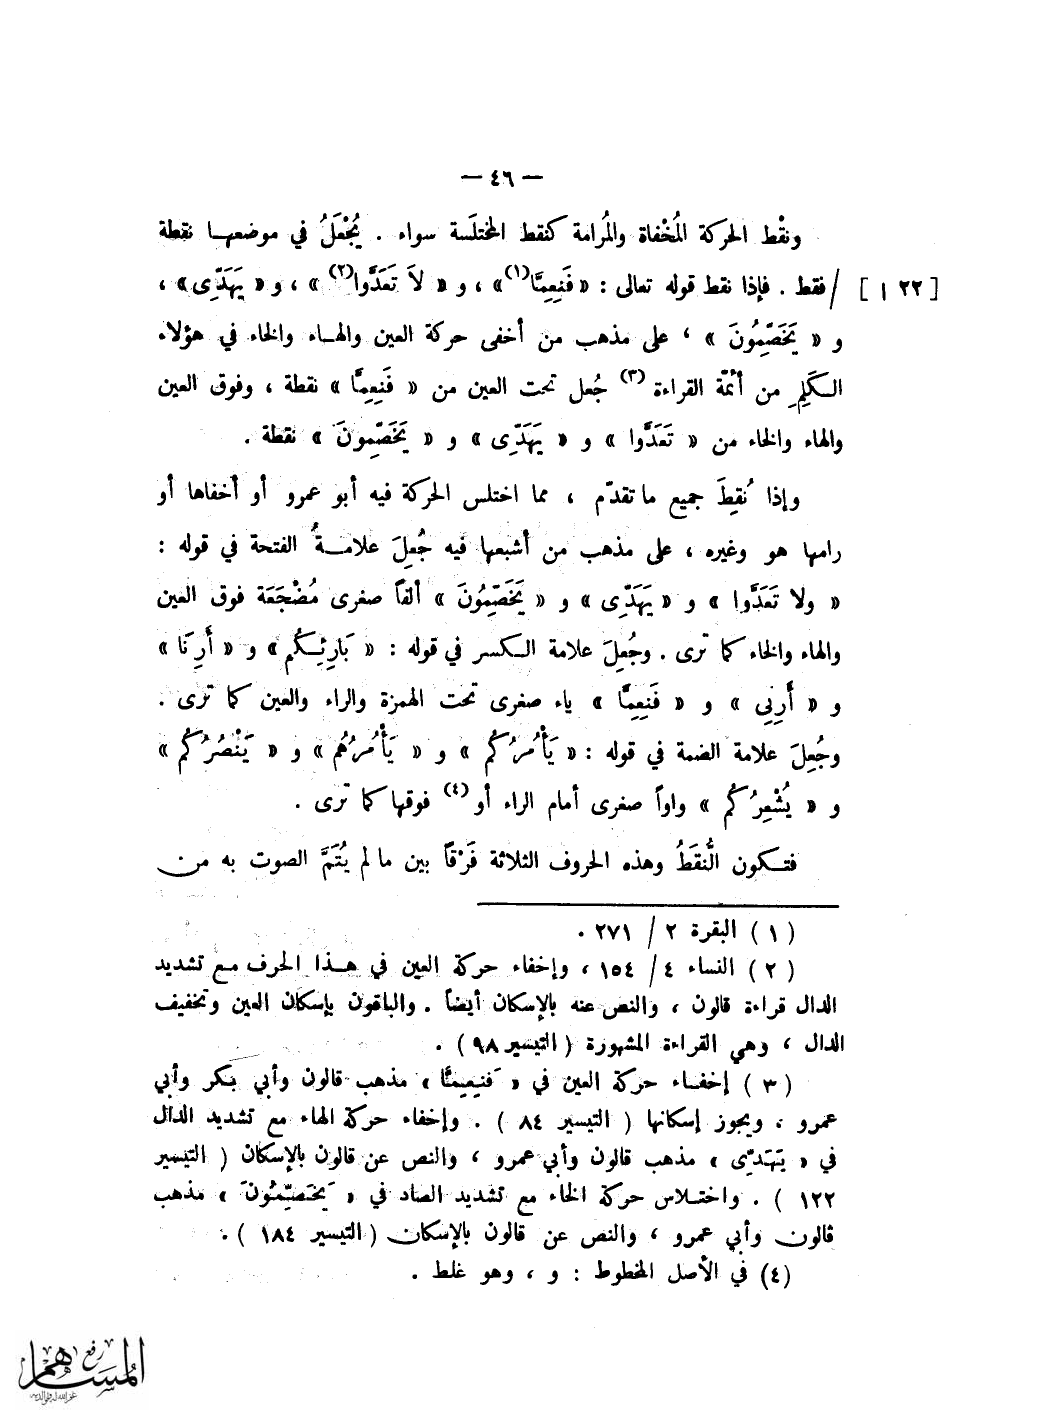 — ٤٦ —
ونقْط الحركة المُخْفاة والمُرامة كنقط المختلَسة سواء . يُجْعَلُ في موضعهـا نقطة
[ ٢٢ ا ] / فقط . فإذا نقط قوله تعالى : « فَنِعِمَّا (١) » ، و « لاَ تَعَدَّوا (٢) » ، و « يَهَدِّى » ،
و « يَخَصِّمُونَ » ، على مذهب من أخفى حركة العين والهـاء والخاء في هؤلاء
الـكَلِمِ من أئمّة القراءة (٣) جُعل تحت العين من « فَنِعِمَّا » نقطة ، وفوق العين
والهاء والخاء من « تَعَدَّوا » و « يَهَدِّى » و « يَخَصِّمونَ » نقطة .
وإذا نُقِطَ جميع ماتقدّم ، مما اختلس الحركة فيه أبو عمرو أو أخفاها أو
رامها هو وغيره ، على مذهب من أشبعها فيه جُعِلَ علامـةُ الفتحة في قوله :
« ولا تَعَدَّوا » و « يَهَدِّى » و « يَخَصِّمُونَ » ألفاً صغرى مُضْجَعَة فوق العين
والهاء والخاء كما ترى . وجُعِلَ علامة الـكسر في قوله : « بَارِئِـكُم » و « أَرِنَا »
و « أَرِنِى » و « فَنِعِمَّا » ياء صغرى تحت الهمزة والراء والعين كما ترى .
وجُعِلَ علامة الضمة في قوله : « يَأْمُرُكُم » و « يَأْمُرُهُم » و « يَنْصُرُكُم »
و « يُشْعِرُكُم » واواً صغرى أمام الراء أو (٤) فوقها كما ترى .
فتـكون النُّقَطُ وهذه الحروف الثلاثة فَرْقاً بين مالم يُتَمَّ الصوت به من
( ١ ) البقرة ٢ / ٢٧١ .
( ٢ ) النساء ٤ / ١٥٤ ، وإخفاء حركة العين في هـذا الحرف مـع تشديد
الدال قراءة قالون ، والنص عنه بالإسكان أيضاً . والباقون بإسكان العين وتخفيف
الدال ، وهي القراءة المشهورة ( التيسير ٩٨ ) .
( ٣ ) إخفـاء حركة العين في « فَنِعِمَّا » مذهب قالون وأبي بكر وأبي
عمرو ، ويجوز إسكانها ( التيسير ٨٤ ) . وإخفاء حركة الهاء مع تشديد الدال
في « يَهَدِّى » مذهب قالون وأبي عمرو ، والنص عن قالون بالإسكان ( التيسير
١٢٢ ) . واختـلاس حركة الخاء مع تشديد الصاد في « يَخَصِّمُونَ » مذهب
قالون وأبي عمرو ، والنص عن قالون بالإسكان ( التيسير ١٨٤ ) .
(٤) في الأصل المخطوط : و ، وهو غلط .
رفع
المساهم